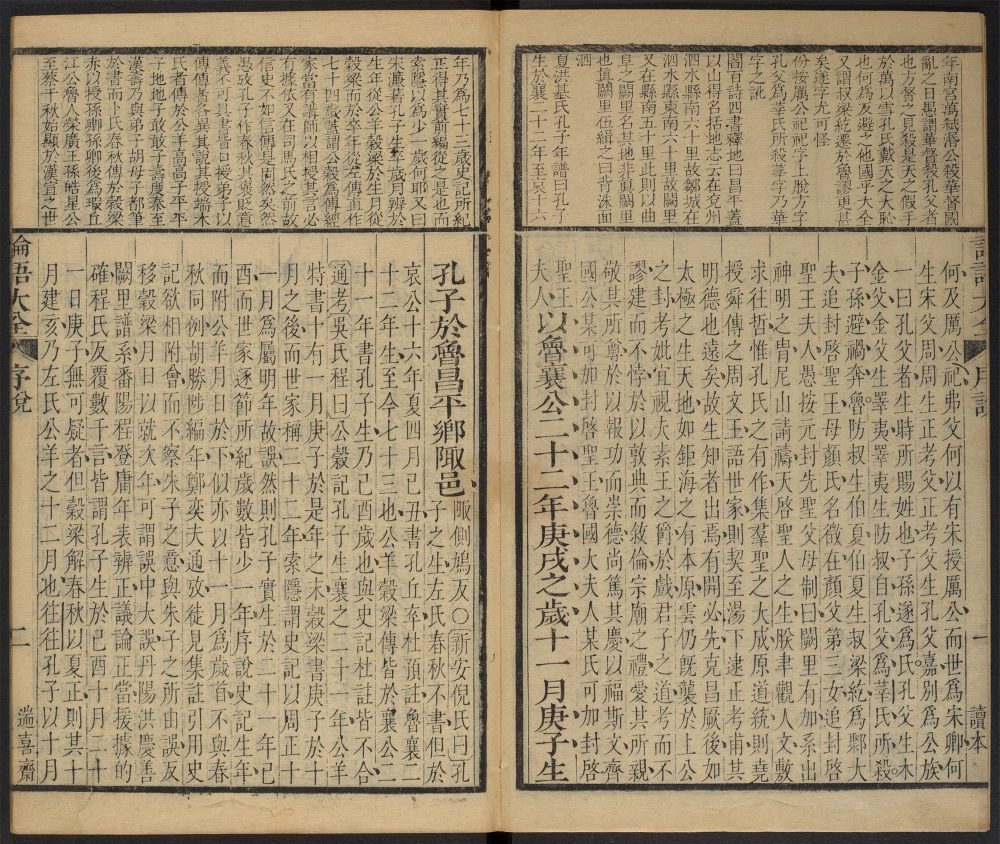 年南宮萬弑潛公殺華督國
亂之日愚謂華督殺孔父者
也方督之見殺是天之假手
於萬以雪孔氏戴天之大恥
也何爲反避之他國乎大全
又謂叔梁紇遷於魯謬更甚
矣逐字尤可怪
份按厲公祀祀字上脫方字
孔父爲華氏所殺莘字乃華
字之訛
閻百詩四書釋地曰昌平蓋
以山得名括地志云在兗州
泗水縣南六十里故鄒城在
泗水縣東南六十里故闕里
又在縣南五十里此則以曲
阜之闕里名其地非眞闕里
也猶闕里伍緝之曰背洙面
泗
夏洪基氏孔子年譜曰孔子
生於襄二十二年至哀十六
何及厲公祀弗父何以有宋授厲公而世爲宋卿何
生宋父周周生正考父正考父生孔父嘉別爲公族
一曰孔父者生時所賜姓也子孫遂爲氏孔父生木
金父金父生睪夷睪夷生防叔自孔父爲莘氏所殺
子孫避禍奔魯防叔生伯夏伯夏生叔梁紇爲鄹大
夫追封啓聖王母顏氏名徵在顏父第三女追封啓
聖王夫人愚按元封先聖父母制曰闕里有加系出
神明之胄尼山請禱天啓聖人之生朕聿觀人文敷
求往哲惟孔氏之有作集羣聖之大成原道統則堯
授舜傳之文王語世家則契至湯下逮正考甫其
明德也遠矣故生知者出焉有開必先克昌厥後如
太極之生天地如鉅海之有本原雲仍旣襲於上公
之封考妣宜視夫素王之爵於戲君子之道考而不
謬建而不悖於以敦典而敘倫宗廟之禮愛其所親
敬其所尊於以報功而崇德尚篤其慶以福斯文齊
國公某可加封啓聖王魯國大夫人某氏可加封啓
聖王夫人以魯襄公二十二年庚戌之歲十一月庚子生
一
讀本
年乃爲七十三歲史記所紀
正得其實前編從之是也而
索隱以爲少一歲何耶又曰
宋濂著孔子生卒歲月辨於
生年從公羊穀梁於生月從
穀梁而於卒年從左傳直作
七十四歲蓋謂公穀爲傳經
家當有講師以相授其言必
有據依又在司馬氏之前故
信史不如信傳是固然矣然
愚攷孔子作春秋其褒貶意
義不可具書書口授弟子以
傳傳者各異其說其授端木
氏者傳於公羊高高子平平
子地地子敢敢子壽慶秦至
漢壽乃與弟子胡毋子都筆
於書而卜氏春秋傳於穀梁
赤以授孫卿孫卿後爲瑕丘
江公魯人榮廣王孫皓星公
至蔡千秋始顯於漢宣之世
孔子於魯昌平鄉陬邑陬側鳩反○新安倪氏曰孔
子之生左氏春秋不書但於
哀公十六年夏四月己丑書孔丘卒杜預註魯襄二
十二年生至今七十三也公羊穀梁傳皆於襄公二
十一年書孔子生乃己酉歲也與史記杜註皆不合
通考吳氏程曰公穀記孔子生襄之二十一年公羊
特書十有一月庚子於是年之末穀梁書庚子於十
月之後而世家稱二十二年索隱謂史記以周正十
一月爲屬明年故誤然則孔子實生於二十一年己
酉而世家逐節所紀歲數皆少一年序說史記生年
而附公羊月日於下似亦以十一月爲歲首不與春
秋同例胡勝陟編年鄭奕大通攷徒見集註引用史
記欲相附會而不察朱子之意與朱子之所由誤反
移穀梁月日以就次年可謂誤中大誤丹陽洪慶善
闕里譜系番陽程登庸年表辨正議論正當援據的
確程氏反覆數千言皆謂孔子生於己酉十月二十
一日庚子無可疑者但穀梁解春秋以夏正則其十
月建亥乃左氏公羊之十二月也往往孔子以十月
論語大全
序說
二
遄喜齋